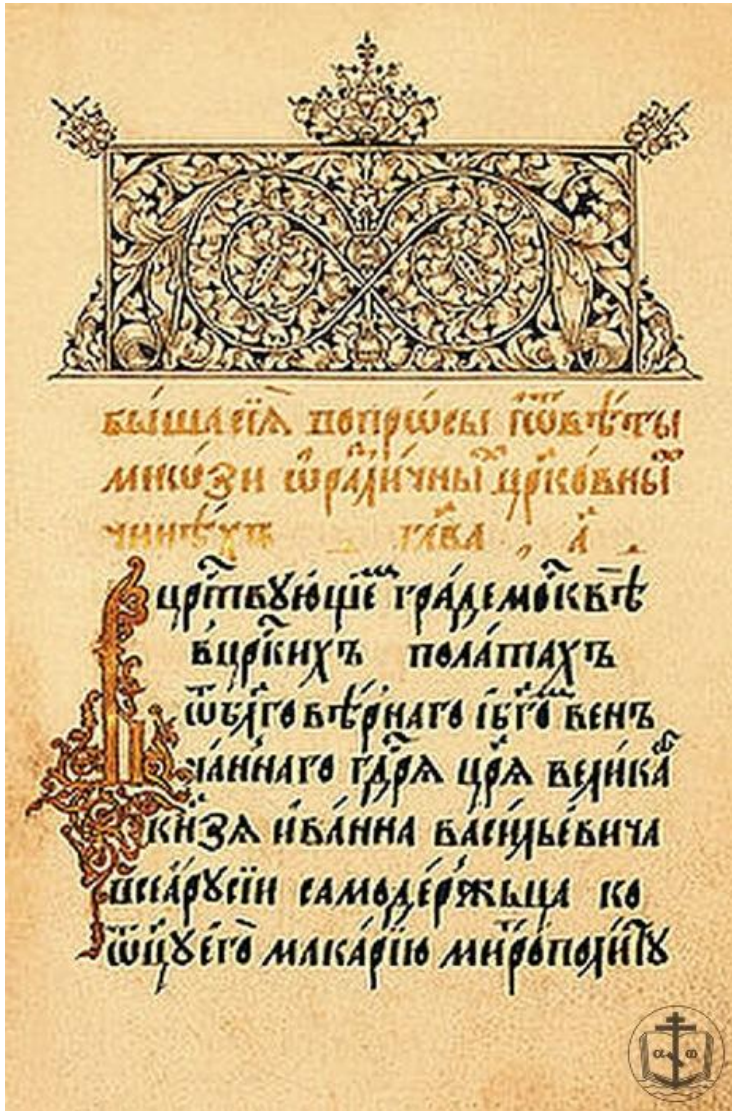 бы́ша сїѧ̀ вопрѡ́сы и҆ѿвѣ́ты
мнѡ́зи ѡ҆ра́личны ц҆рко́вны
чинѣ́хъ гл҃ва а҃
В цр҇тву́ющеⷨ гра́де моⷭ҇квѣ̀
вцр҇кихъ пола́тахъ
ѿбл҃говѣ́рнаго і҆бг҃оⷨ вѣн
ча́ннаго гдⷭ҇рѧ цр҃ѧ вели́каⷢ҇
кнѧ́зѧ и҆ва́нна васи́льевича
всеѧ̀ рꙋсі́и самоде́ржьца ко
ѿцꙋ̀ є҆го̀ мака́рїю митрополи́тꙋ
α ω